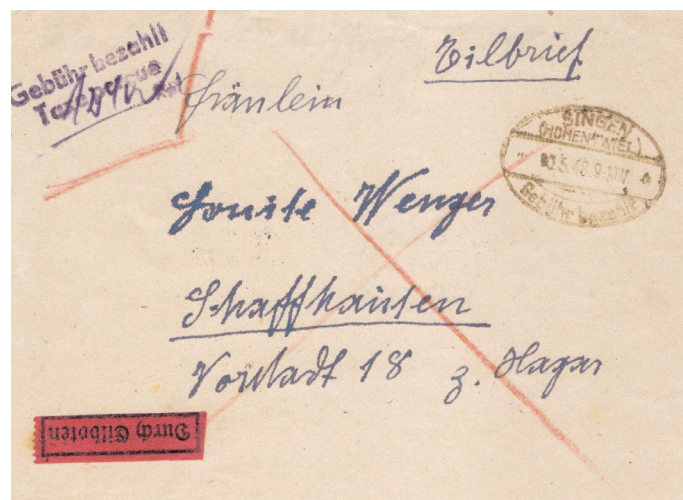 Gebühr bezahlt
Taxe perçue
Eilbrief
Fräulein
SINGEN
(HOHENTWIEL)
.5.48.9-10V
Gebühr bezahlt
Louise Wenger
Schaffhausen
Vorstadt 18 z.
Durch Eilboten